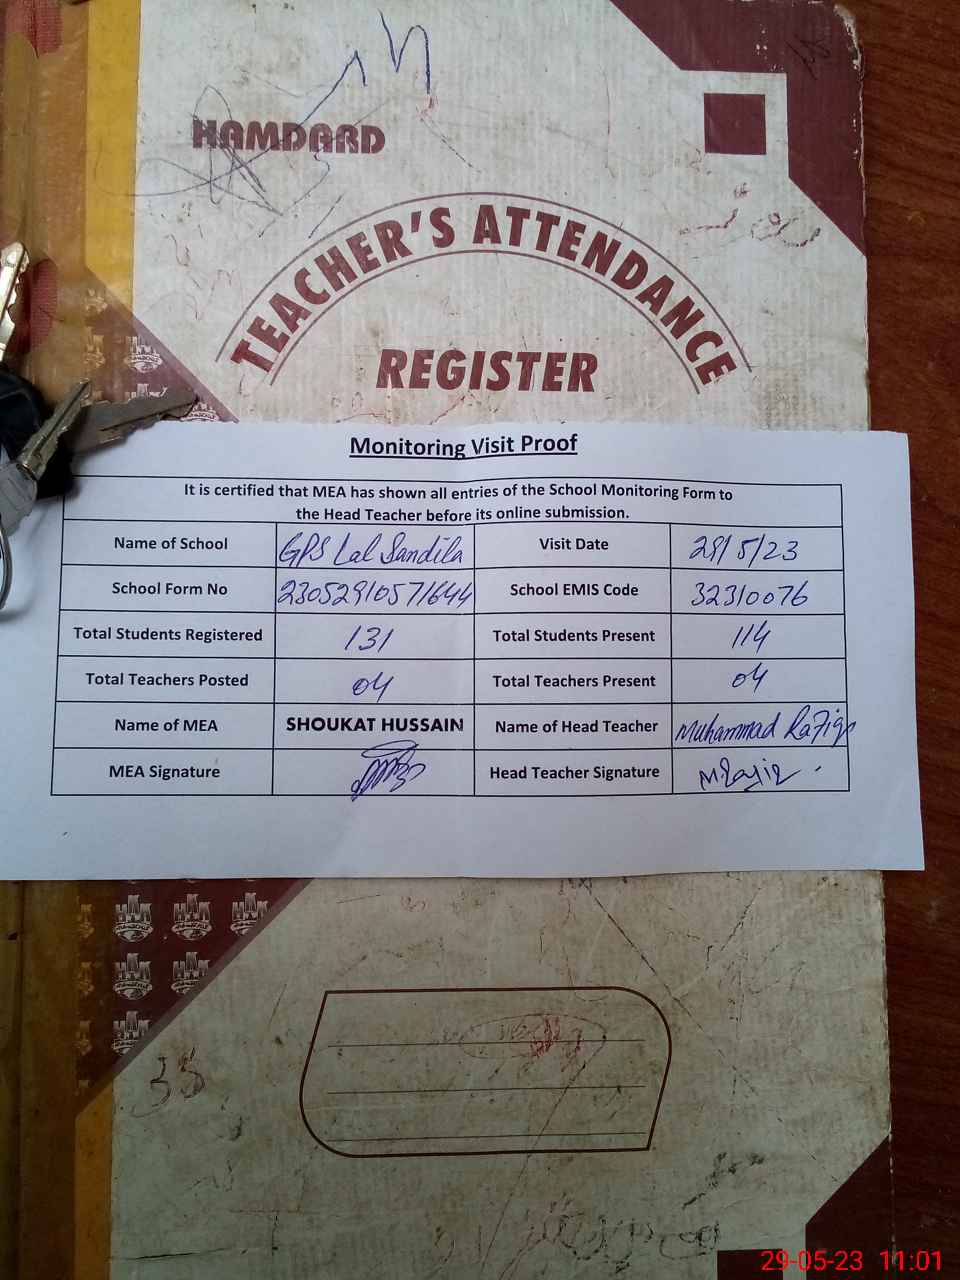 HAMDARD
TEACHER'S ATTENDANCE
REGISTER
Monitoring Visit Proof
It is certified that MEA has shown all entries of the School Monitoring Form to
the Head Teacher before its online submission.
Name of School GPS Lal Sandila Visit Date 29/5/23
School Form No 23052910571644 School EMIS Code 32310076
Total Students Registered 131 Total Students Present 114
Total Teachers Posted 04 Total Teachers Present 04
Name of MEA SHOUKAT HUSSAIN Name of Head Teacher Muhammad Rafiq
MEA Signature Head Teacher Signature M.Rafiq
29-05-23 11:01